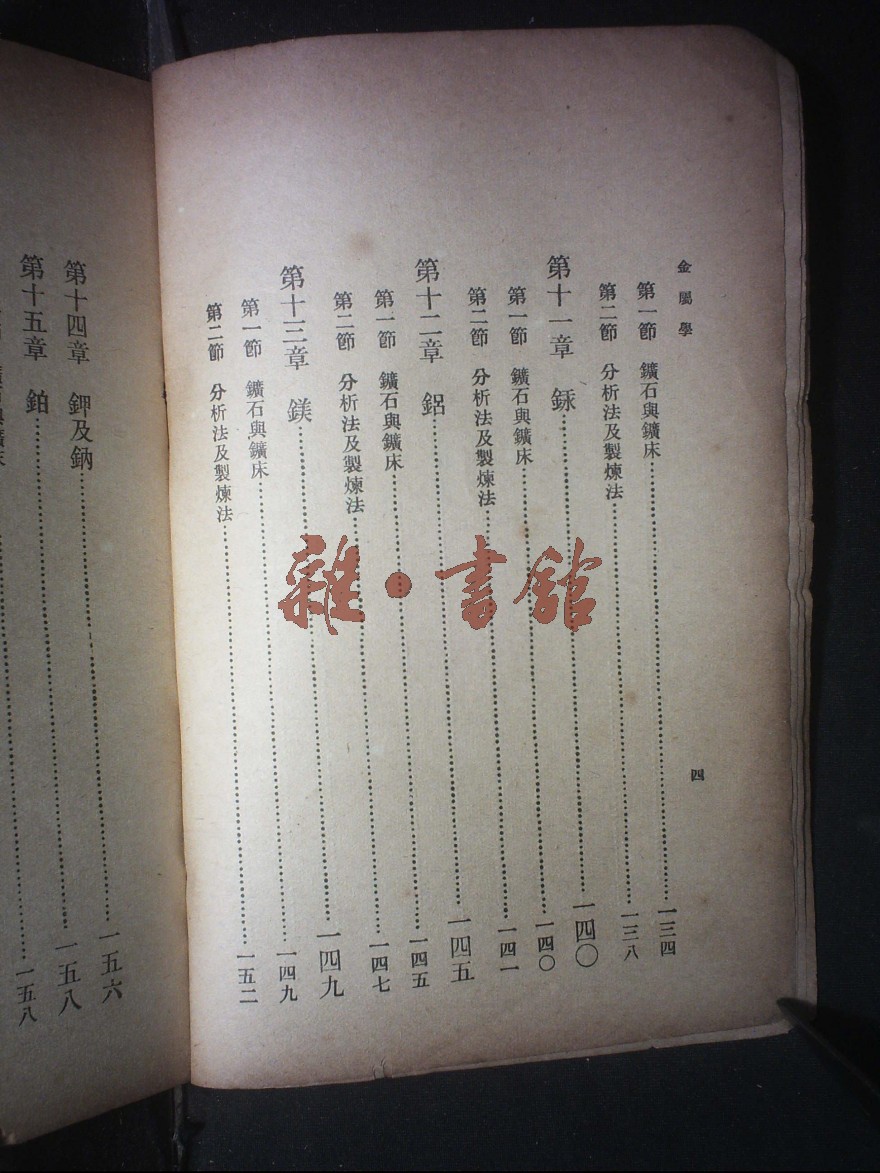 金屬學
四
第一節 鑛石與鑛床……一三四
第二節 分析法及製煉法……一三八
第十一章 銾……一四〇
第一節 鑛石與鑛床……一四〇
第二節 分析法及製煉法……一四一
第十二章 鋁……一四五
第一節 鑛石與鑛床……一四五
第二節 分析法及製煉法……一四七
第十三章 鎂……一四九
第一節 鑛石與鑛床……一四九
第二節 分析法及製煉法……一五二
第十四章 鉀及鈉……一五六
第十五章 鉑……一五八
鑛石與鑛床……一五八
雜·書館